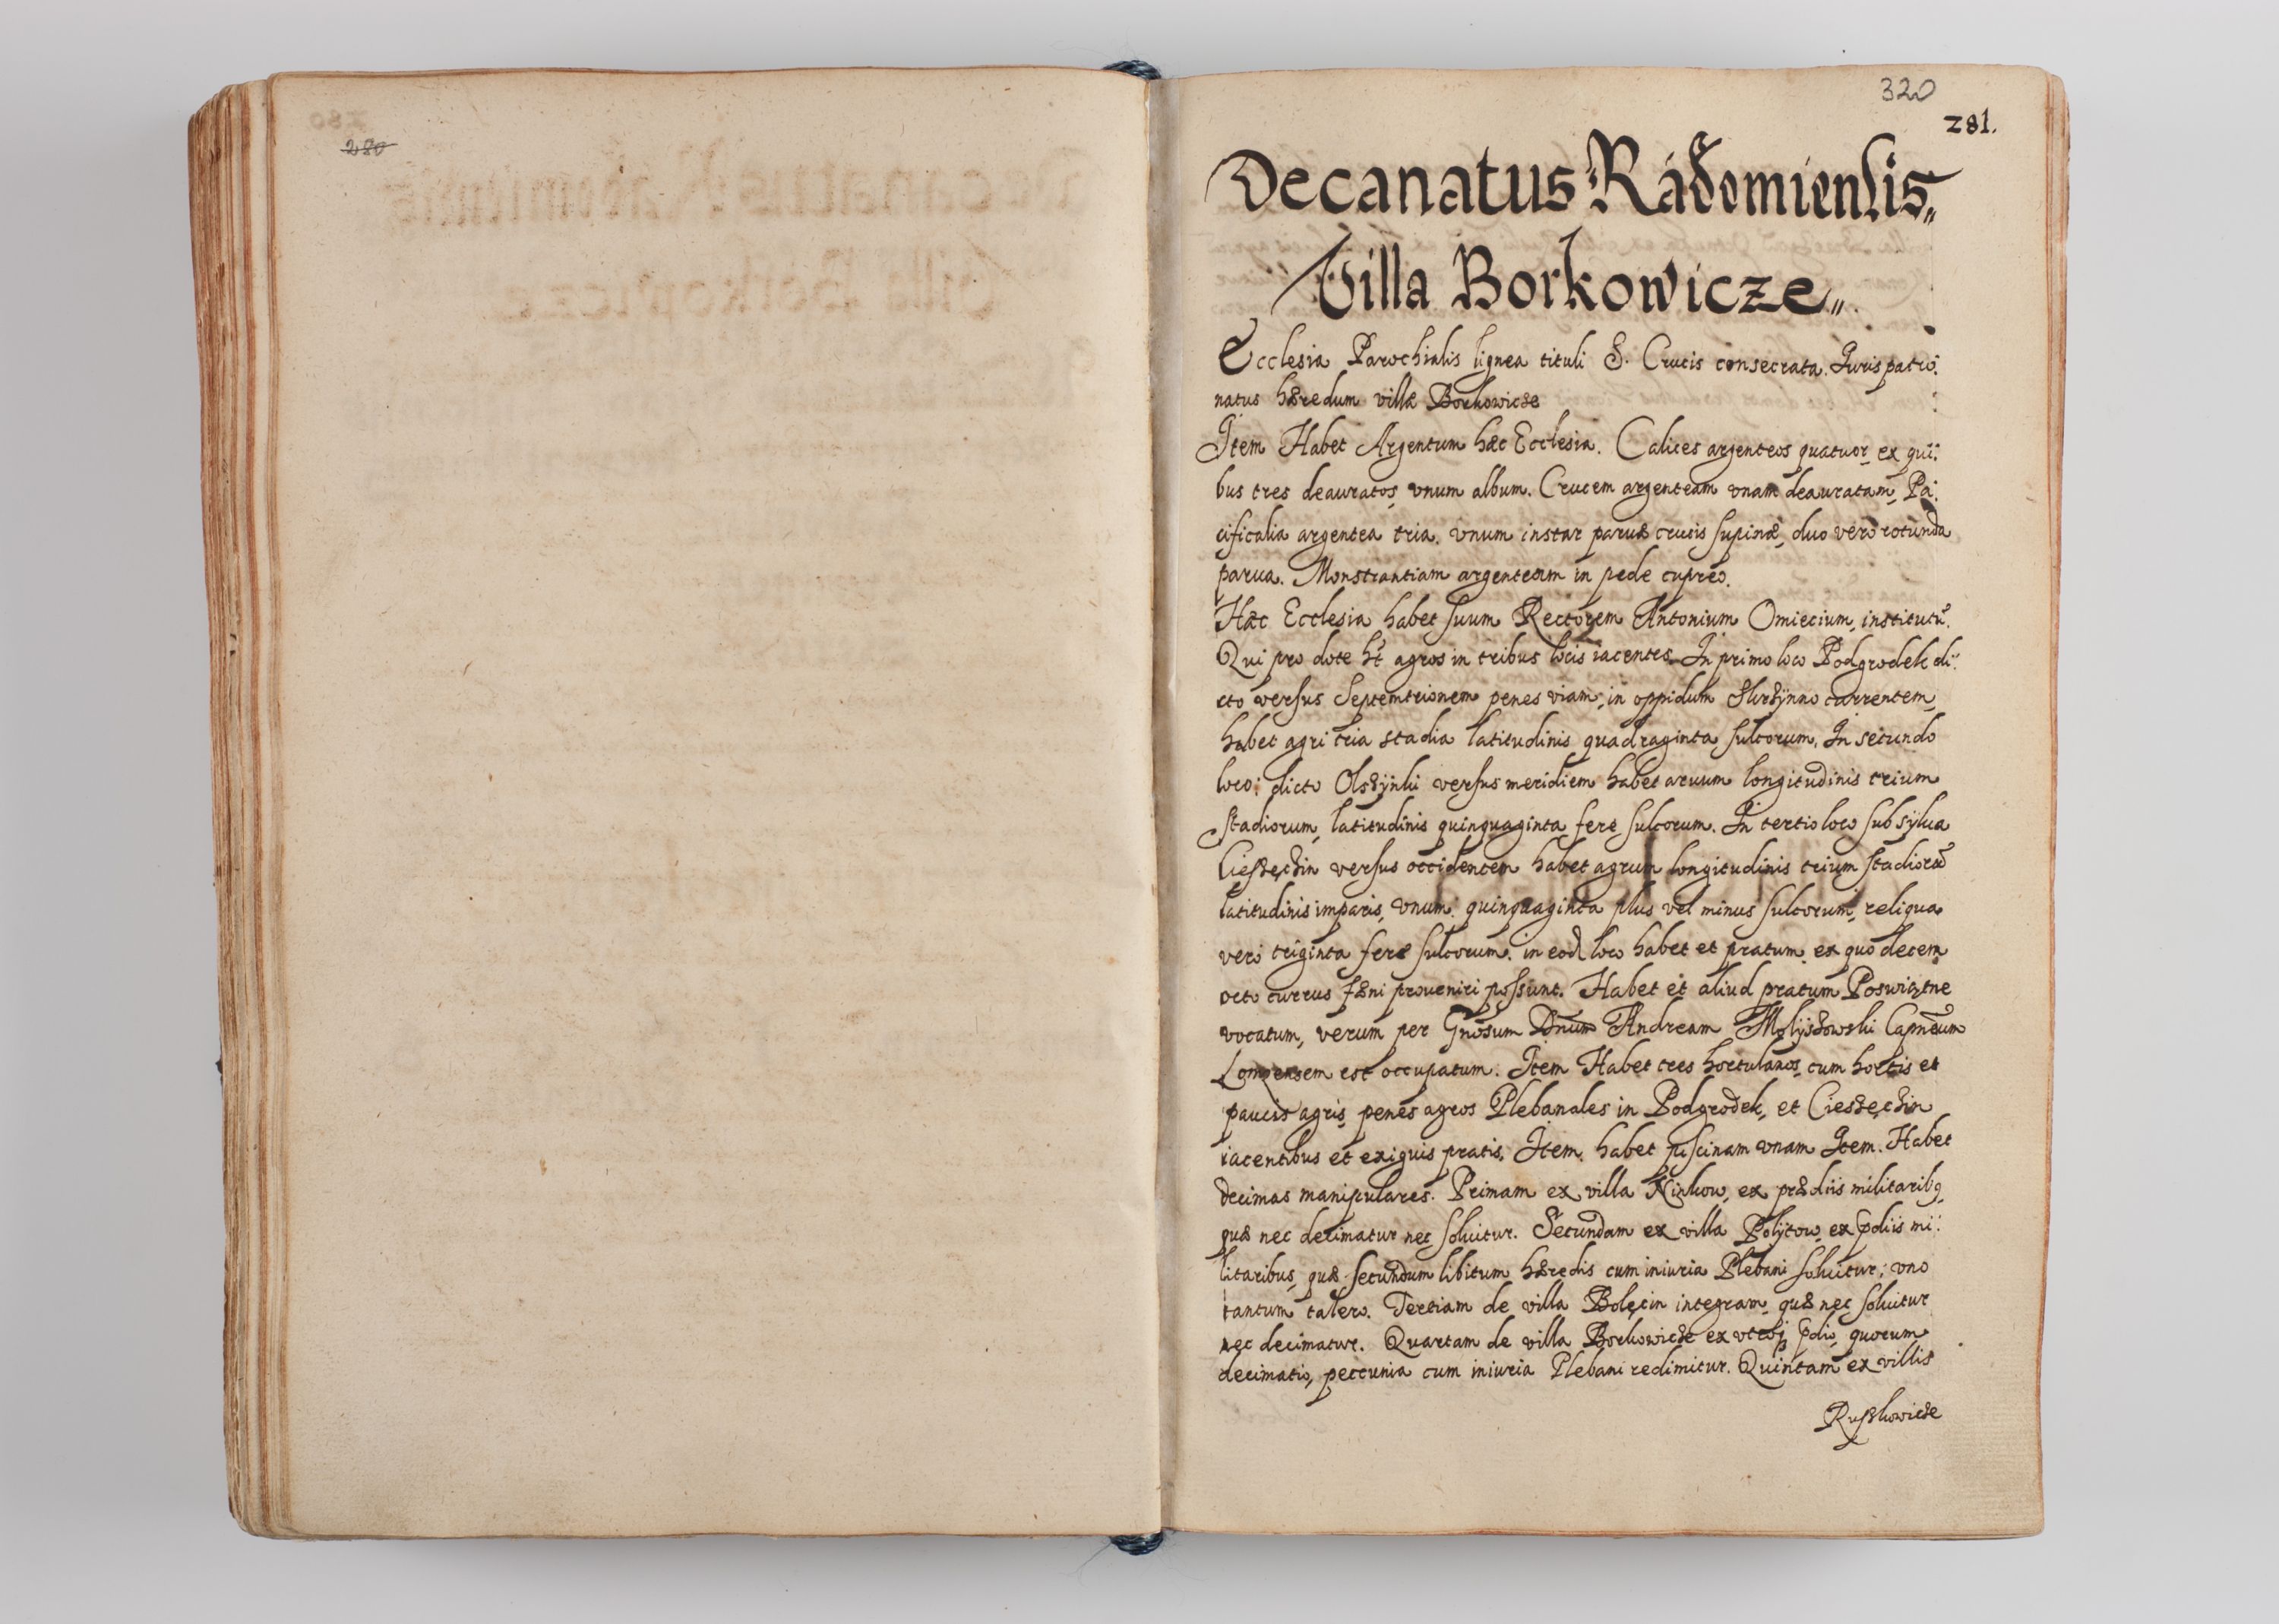 280
320
281.
Decanatus Rádomiensis„
Villa Borkowicze„
Ecclesia Parochialis lignea tituli S. Crucis consecrata. Juris patro:
natus hæredum villæ Borkowicze
Item Habet Argentum hæc Ecclesia. Calices argenteos quatuor, ex qui:
bus tres deauratos, vnum album. Crucem argenteam vnam deauratam, Pa:
cificalia argentea tria. vnum instar paruæ crucis supinæ, duo vero rotunda
parua. Monstrantiam argenteam in pede cupreo.
Hæc Ecclesia habet suum Rectorem Antonium Omiecium, institutũ.
Qui pro dote ht agros in tribus locis iacentes. In primo loco Podgrodek di:
cto versus Septemtrionem penes viam, in oppidum Skrzÿnno currentem,
habet agri tria stadia latitudinis quadraginta sulcorum. In secundo
loco: dicto Olszÿnki versus meridiem habet aruum longitudinis trium
stadiorum, latitudinis quinquaginta fere sulcorum. In tertio loco sub sÿlua
versus occidentem habet agrum longitudinis trium stadiorũ
latitudinis imparis, vnum quinquaginta plus vel minus sulcorum, reliqua
vero triginta fere sulcorum. in eod loco habet et pratum, ex quo decem
octo currus fæni proueniri possunt. Habet et aliud pratum Poswiętne
vocatum, verum per Gnosum Dnum Andream Capneum
est occupatum. Item Habet tres hortulanos, cum hortis et
paucis agris, penes agros Plebanales in Podgrodek, et
iacentibus et exiguis pratis, Item habet piscinam vnam Item. Habet
decimas manipulares. Primam ex villa Ninkow, ex prædiis militaribq
quæ nec decimatur nec soluitur. Secundam ex villa Polÿtow, ex pdiis mi:
litaribus, quæ secundum libitum hæredis cum iniuria Plebani soluitur; vno
tantum talero. Tertiam de villa Bolęcin integram, quæ nec soluitur
nec decimatur. Quartam de villa Borkowicze ex vtroq pdio, quorum
decimatio, peccunia cum iniuria Plebani redimitur. Quintam ex villis
Ruszkowicze